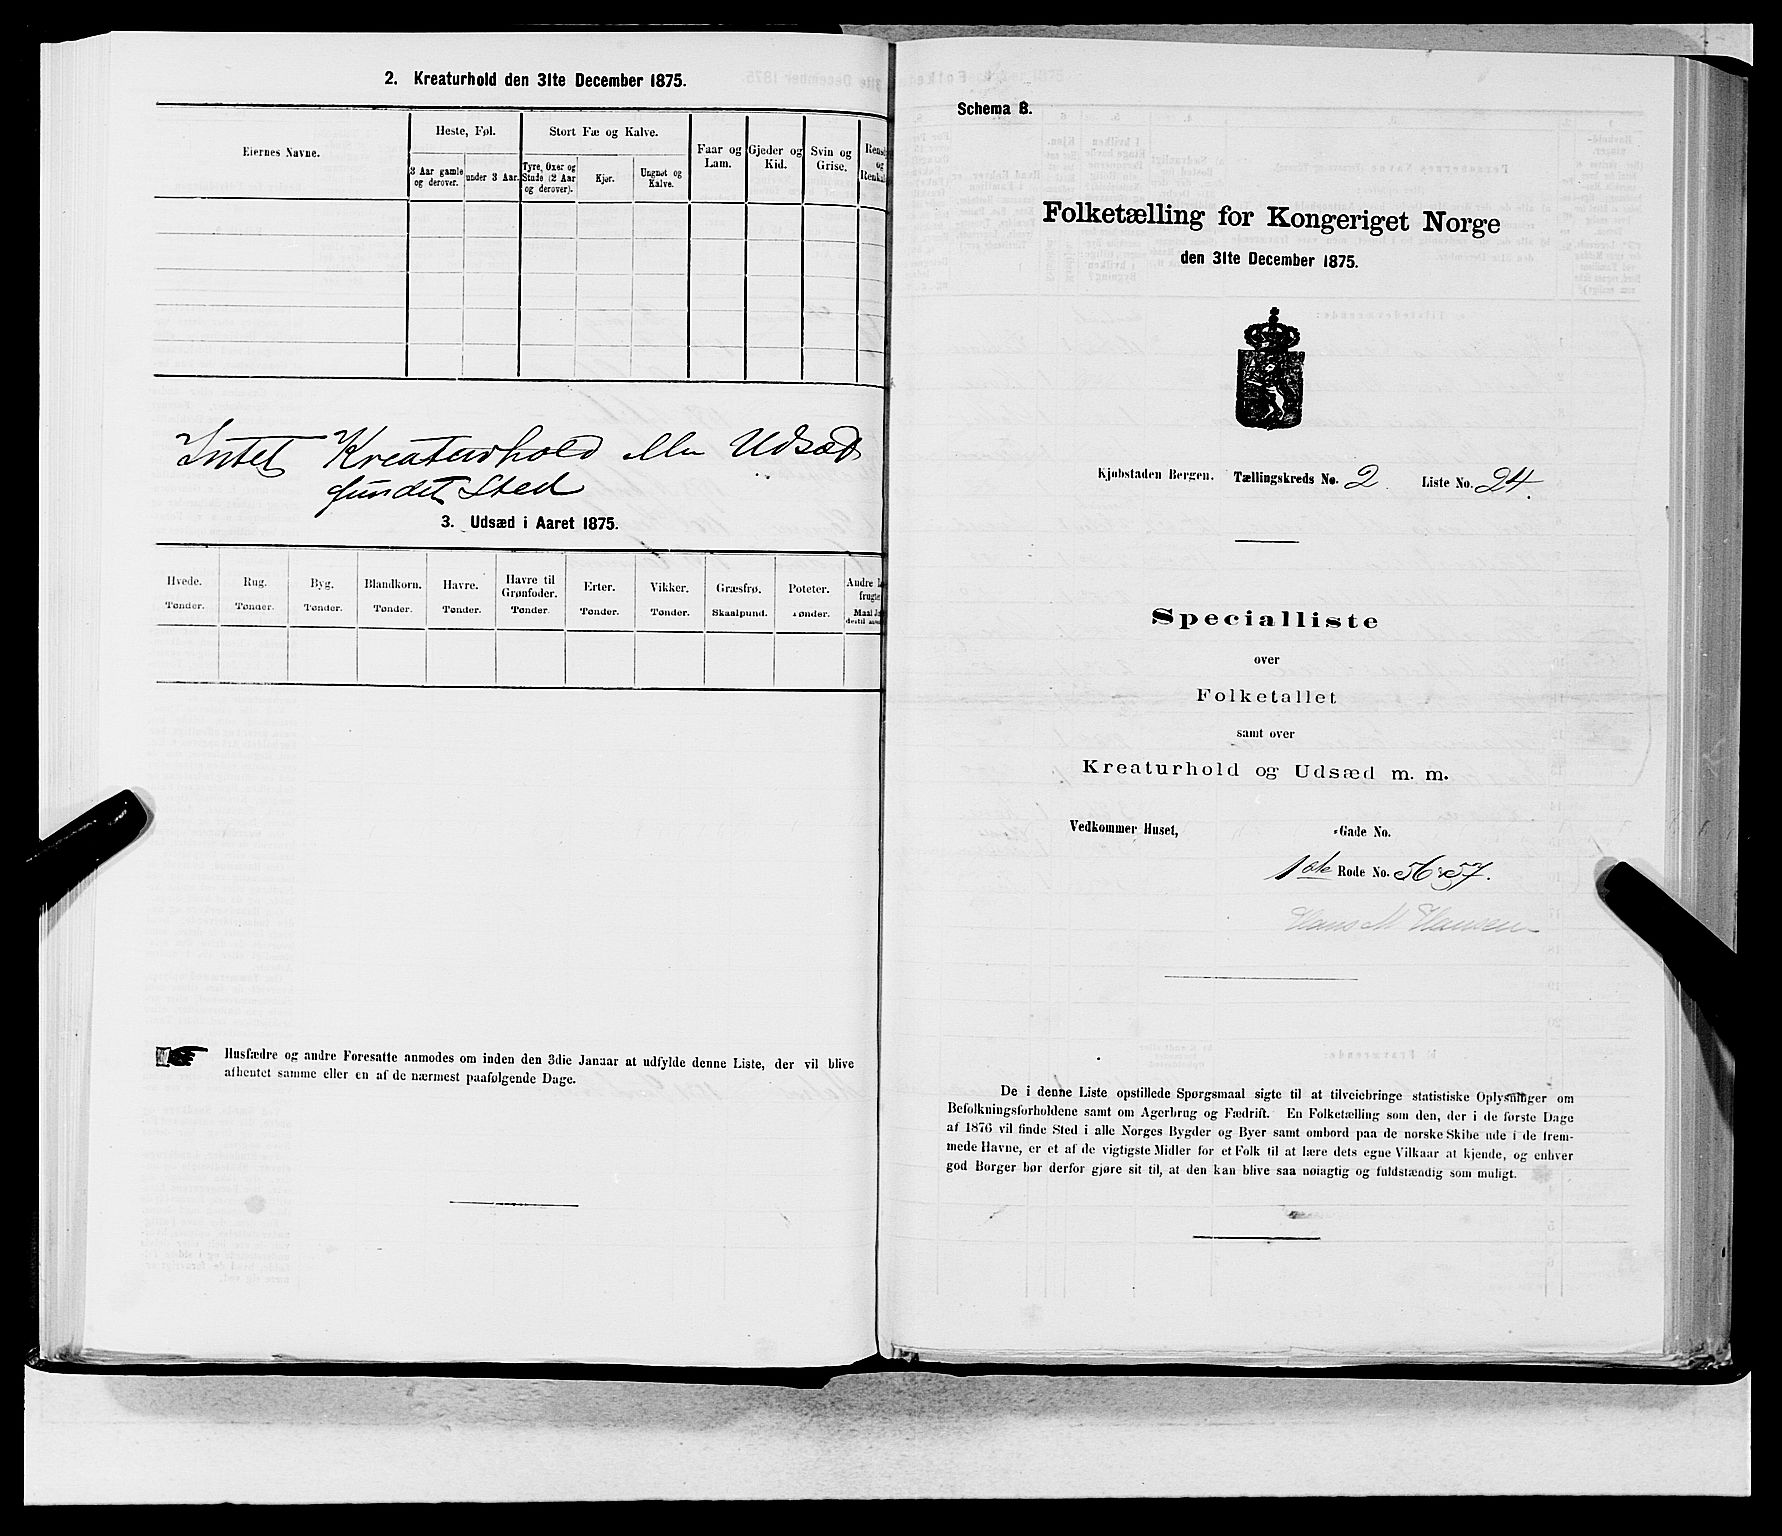 2. Kreaturhold den 31te December 1875.
Eiernes Navne.
Heste, Føl.
Stort Fæ og Kalve.
Faar og Lam.
Gjeder og Kid.
Svin og Grise.
Rensdyr og Renkalve
3 Aar gamle og derover.
under 3 Aar.
Tyre, Oxer og Stude (2 Aar og derover).
Kjør.
Ungnøt og Kalve.
Intet Kreaturhold eller Udsæd
fundet Sted
3. Udsæd i Aaret 1875.
Hvede. Rug. Byg. Blandkorn. Havre. Havre til Grønfoder. Erter. Vikker. Græsfrø. Poteter. Andre
Tønder. Tønder. Tønder. Tønder. Tønder. Tønder. Tønder. Tønder. Skaalpund. Tønder. Maal
Husfædre og andre Foresatte anmodes om inden den 3die Januar at udfylde denne Liste, der vil blive
afhentet samme eller en af de nærmest paafølgende Dage.
Schema B.
Folketælling for Kongeriget Norge
den 31te December 1875.
Kjøbstaden Bergen. Tællingskreds No. 2. Liste No. 24.
Specialliste
over
Folketallet
samt over
Kreaturhold og Udsæd m. m.
Vedkommer Huset, -Gade No.
1ste Rode No. 56 & 57.
Hans M Hansen
De i denne Liste opstillede Spørgsmaal sigte til at tilveiebringe statistiske Oplysninger om
Befolkningsforholdene samt om Agerbrug og Fædrift. En Folketælling som den, der i de første Dage
af 1876 vil finde Sted i alle Norges Bygder og Byer samt ombord paa de norske Skibe ude i de frem-
mede Havne, er et af de vigtigste Midler for et Folk til at lære dets egne Vilkaar at kjende, og enhver
god Borger bør derfor gjøre sit til, at den kan blive saa nøiagtig og fuldstændig som muligt.